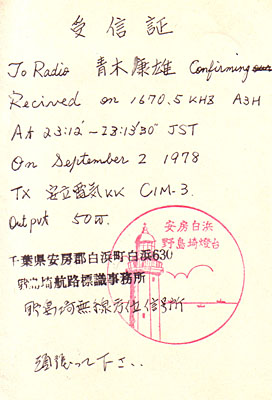 受信証
To Radio 青木康雄 Confirming
Recived on 1670.5 KHz A3H
At 23:12'–23:13'30" JST
On September 2 1978
TX 安立電気KK CIM-3.
Output 50W.
安房白浜
野島埼燈台
千葉県安房郡白浜町白浜630
野島埼航路標識事務所
野島埼無線方位信号所
頑張って下さい.